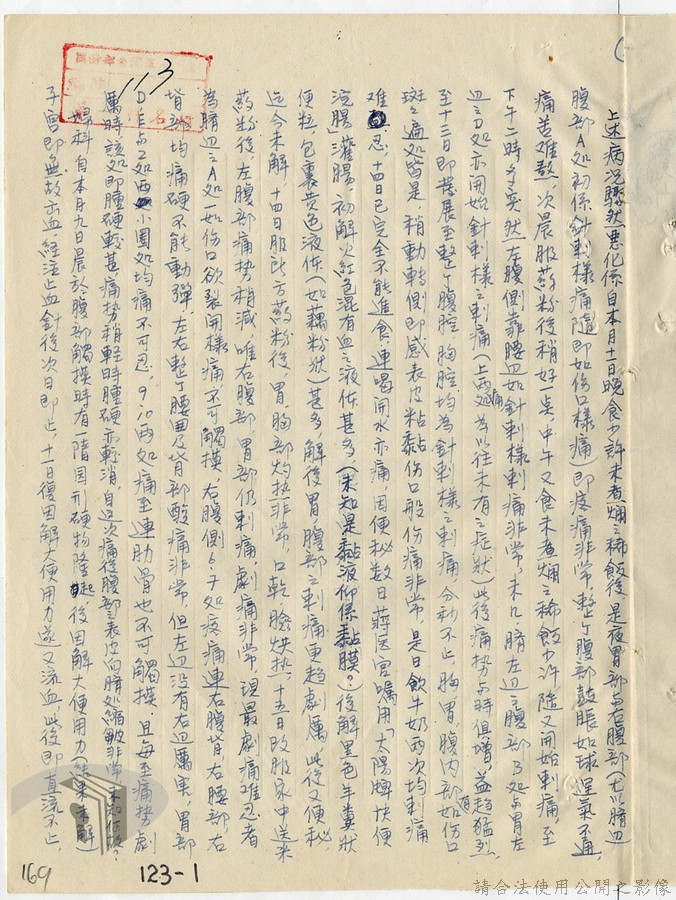 上述病况驟然悪化係自本月十一日晚食少許未煮爛之稀飯後是夜胃部与右腹部(尤以臍边
腹部A处初係針刺樣痛隨即如伤口樣痛)即疼痛非常,整个腹部鼓脹如球逞氣不通,
痛苦难熬,次晨服藥粉後稍好一点中午又食未煮爛之稀飯少許隨又開始刺痛,至
下午二時多突然左腹側靠腰边如針刺樣刺痛非常,未几臍左边之腹部B处与胃左
边之C处亦開始針刺樣之刺痛(上两处痛為以往未有之症狀)此後痛势与時俱增,益趋猛烈,
至十三日即蔓展至整个腹腔,胸腔均為針刺樣之刺痛,分秒不止,胸胃腹内部如有伤口
斑之遍处皆是,稍動轉側即感表皮粘黏伤口般伤痛非常,是日飲牛奶两次均刺痛
难忍,十四日已完全不能進食,連喝開水亦痛,因便秘数日蒋医官嘱用「太陽牌快便
浣腸」灌腸,初解火紅色混有血之液体甚多(未知是黏液抑係黏膜?)後解黑色羊糞狀
便粒,包裹黄色液体(如藕粉狀)甚多,解後胃,腹部之刺痛更趋劇厲,此後又便秘
迄今未解,十四日服此方藥粉後,胃,胸部灼热非常,口乾,臉烘热,十五日改服家中送来
藥粉後,左腹部痛势稍減,唯右腹部,胃部仍刺痛,劇痛非常,現最劇痛难忍者
為臍边之A处一如伤口欲裂開樣痛,不可觸摸,右腹側6.7处疼痛連右腹背,右腰部,右
背部均痛硬不能動彈,左右整个腰圍及背部酸痛非常,但左边没有右边厲害,胃部
D E与2处两小圈处均痛不可忍,9.10两处痛至連肋骨也不可觸摸 且每至痛势劇
厲時該处即腫硬較甚,痛势稍輕時腫硬亦較消,自这次痛後腹部之表皮向臍处縮皺非常未知何故?
婦科自本月九日晨於腹部觸摸時有一隋因形硬物隆起,後因解大便用力(結果未解)
子宫即無故出血,經注止血針後次日即止,十日復因解大便用力遂又流血,此後即直流不止,
113
169
123-1
請合法使用公開之影像